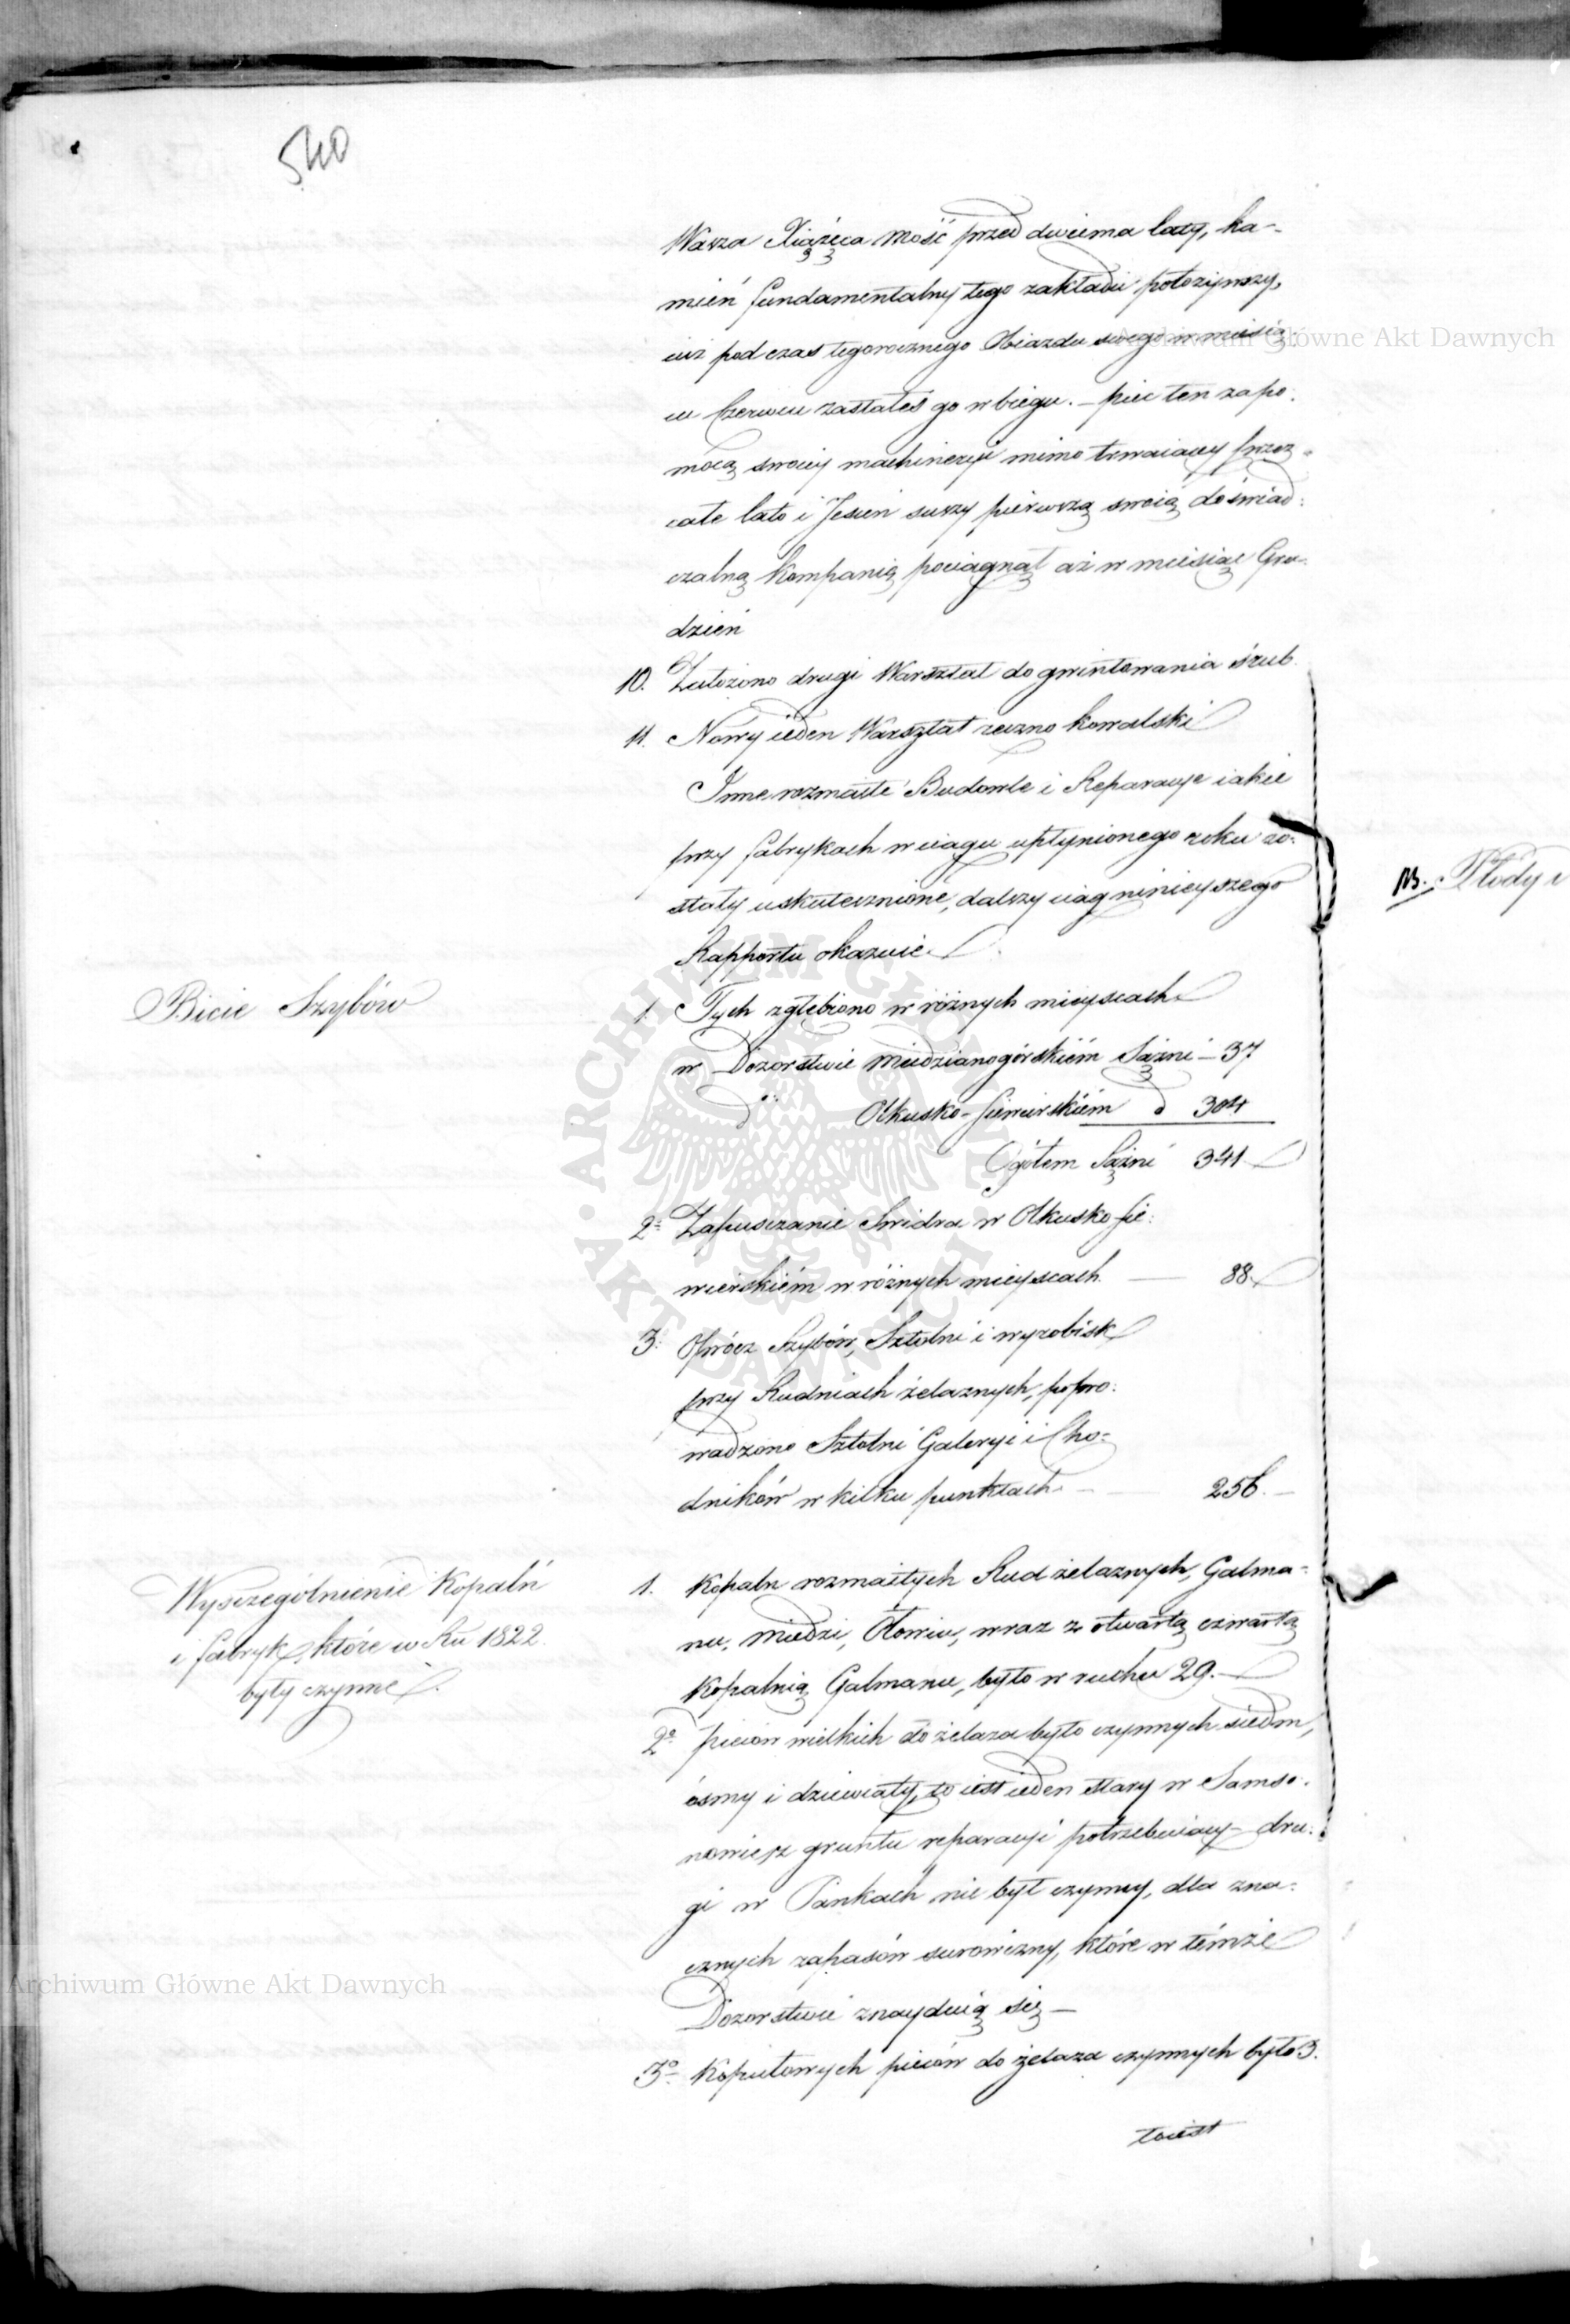 540
Wasza Xiążęca Mość przed dwiema laty, ka-
mień fundamentalny tego zakładu położywszy,
iuż pod czas tegorocznego Obiazdu swego w miesią-
cu Czerwcu zastałeś go w biegu. – piec ten zapo:
mocą swoiey machineryi mimo trwaiącey przez
całe lato i Jesień suszy pierwszą swoią doświad:
czalną Kompanią pociągnął aż w miesiąc Gru-
dzień
10. Założono drugi Warsztat do gwintowania szrub
11. Nowy ieden Warsztat ręczno kowalski
Inne rozmaite Budowle i Reparacye iakie
przy fabrykach w ciągu upłynionego roku zo:
stały uskutecznione, dalszy ciąg ninieyszego
Rapportu okazuie.
Bicie Szybów
1. Tych zgłębiono w różnych mieyscach
w Dozorstwie Miedzianogórskiém Sążni – 37
do Olkusko-Siewierskiém d 304
Ogółem Sążni 341
2° Zapuszczanie Swidra w Olkusko Sie:
wierskiém w różnych mieyscach. — 88.
3: Oprócz Szybów, Sztolni i wyrobisk
przy Rudniach żelaznych, popro:
wadzono Sztolni Galeryi i Cho:
dników w kilku punktach. — 256. –
Wyszczególnienie Kopalń
i fabryk, które w Ru 1822.
były czynne.
1. Kopalń rozmaitych Rud żelaznych, Galma-
nu, Miedzi, Ołowiu, wraz z otwartą czwartą
Kopalnią Galmanu, było w ruchu 29. –
2° pieców wielkich do żelaza było czynnych siedm,
ósmy i dziewiąty, to iest ieden stary w Samso:
nowie z gruntu reparacyi potrzebuiący – dru:
gi w Pankach nie był czynny, dla zna:
cznych zapasów surowizny, które w témże
Dozorstwie znayduią się –
3° Kopułowych pieców do żelaza czynnych było 3.
toiest
Płody i
Archiwum Główne Akt Dawnych
Archiwum Główne Akt Dawnych
ARCHIWUM GŁÓWNE · AKT DAWNYCH ·